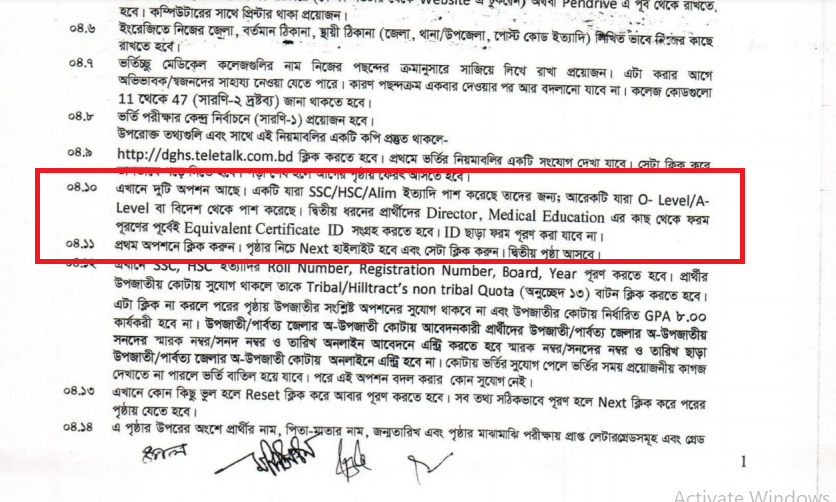 Website এ ঢুকবেন) অথবা Pendrive এ পূর্ব থেকে রাখতে
হবে। কম্পিউটারের সাথে প্রিন্টার থাকা প্রয়োজন।
০৪.৬ ইংরেজিতে নিজের জেলা, বর্তমান ঠিকানা, স্থায়ী ঠিকানা (জেলা, থানা/উপজেলা, পোস্ট কোড ইত্যাদি) লিখিত ভাবে নিজের কাছে
রাখতে হবে।
০৪.৭ ভর্তিচ্ছু মেডিকেল কলেজগুলির নাম নিজের পছন্দের ক্রমানুসারে সাজিয়ে লিখে রাখা প্রয়োজন। এটা করার আগে
অভিভাবক/স্বজনদের সাহায্য নেওয়া যেতে পারে। কারণ পছন্দক্রম একবার দেওয়ার পর আর বদলানো যাবে না। কলেজ কোডগুলো
11 থেকে 47 (সারণি-২ দ্রষ্টব্য) জানা থাকতে হবে।
০৪.৮ ভর্তি পরীক্ষার কেন্দ্র নির্বাচনে (সারণি-১) প্রয়োজন হবে।
উপরোক্ত তথ্যগুলি এবং সাথে এই নিয়মাবলির একটি কপি প্রস্তুত থাকলে-
০৪.৯ http://dghs.teletalk.com.bd ক্লিক করতে হবে। প্রথমে ভর্তির নিয়মাবলির একটি সংযোগ দেখা যাবে। সেটা ক্লিক করে
হবে। পড়া শেষ হলে আগের পৃষ্ঠায় ফেরৎ আসতে হবে।
০৪.১০ এখানে দুটি অপশন আছে। একটি যারা SSC/HSC/Alim ইত্যাদি পাশ করেছে তাদের জন্য; আরেকটি যারা O- Level/A-
Level বা বিদেশ থেকে পাশ করেছে। দ্বিতীয় ধরনের প্রার্থীদের Director, Medical Education এর কাছ থেকে ফরম
পূরণের পূর্বেই Equivalent Certificate ID সংগ্রহ করতে হবে। ID ছাড়া ফরম পূরণ করা যাবে না।
০৪.১১ প্রথম অপশনে ক্লিক করুন। পৃষ্ঠার নিচে Next হাইলাইট হবে এবং সেটা ক্লিক করুন। দ্বিতীয় পৃষ্ঠা আসবে।
০৪.১২ এখানে SSC, HSC ইত্যাদির Roll Number, Registration Number, Board, Year পূরণ করতে হবে। প্রার্থীর
উপজাতীয় কোটায় সুযোগ থাকলে তাকে Tribal/Hilltract's non tribal Quota (অনুচ্ছেদ ১৩) বাটন ক্লিক করতে হবে।
এটা ক্লিক না করলে পরের পৃষ্ঠায় উপজাতীর সংশ্লিষ্ট অপশনের সুযোগ থাকবে না এবং উপজাতীর কোটায় নির্ধারিত GPA ৮.০০
কার্যকরী হবে না। উপজাতী/পার্বত্য জেলার অ-উপজাতী কোটায় আবেদনকারী প্রার্থীদের উপজাতী/পার্বত্য জেলার অ-উপজাতীয়
সনদের স্মারক নম্বর/সনদ নম্বর ও তারিখ অনলাইন আবেদনে এন্ট্রি করতে হবে স্মারক নম্বর/সনদের নম্বর ও তারিখ ছাড়া
উপজাতী/পার্বত্য জেলার অ-উপজাতী কোটায় অনলাইনে এন্ট্রি হবে না। কোটায় ভর্তির সুযোগ পেলে ভর্তির সময় প্রয়োজনীয় কাগজ
দেখাতে না পারলে ভর্তি বাতিল হয়ে যাবে। পরে এই অপশন বদল করার কোন সুযোগ নেই।
০৪.১৩ এখানে কোন কিছু ভুল হলে Reset ক্লিক করে আবার পূরণ করতে হবে। সব তথ্য সঠিকভাবে পূরণ হলে Next ক্লিক করে পরের
পৃষ্ঠায় যেতে হবে।
০৪.১৪ এ পৃষ্ঠার উপরের অংশে প্রার্থীর নাম, পিতা-মাতার নাম, জন্মতারিখ এবং পৃষ্ঠার মাঝামাঝি পরীক্ষায় প্রাপ্ত লেটারগ্রেডসমূহ এবং গ্রেড
1
Activate Windows